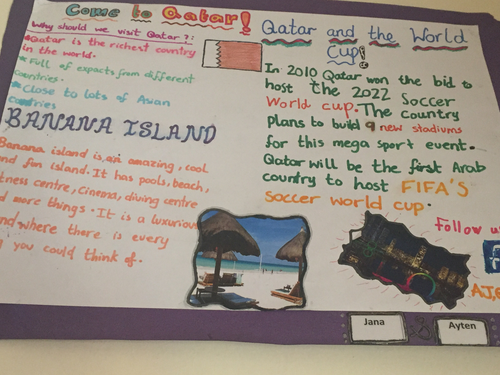 Come to Qatar!
Why should we visit Qatar?:
Qatar is the richest country
in the world.
Full of expacts from different
countries.
Close to lots of Asian
Countries
BANANA ISLAND
Banana island is an amazing, cool
and fun island. It has pools, beach,
fitness centre, cinema, diving centre
and more things. It is a luxurious
where there is every
you could think of.
Qatar and the World
Cup!
In 2010 Qatar won the bid to
host the 2022 Soccer
World cup. The country
plans to build 9 new stadiums
for this mega sport event.
Qatar will be the first Arab
country to host FIFA'S
soccer world cup.
Follow us
f
Jana
&
Ayten